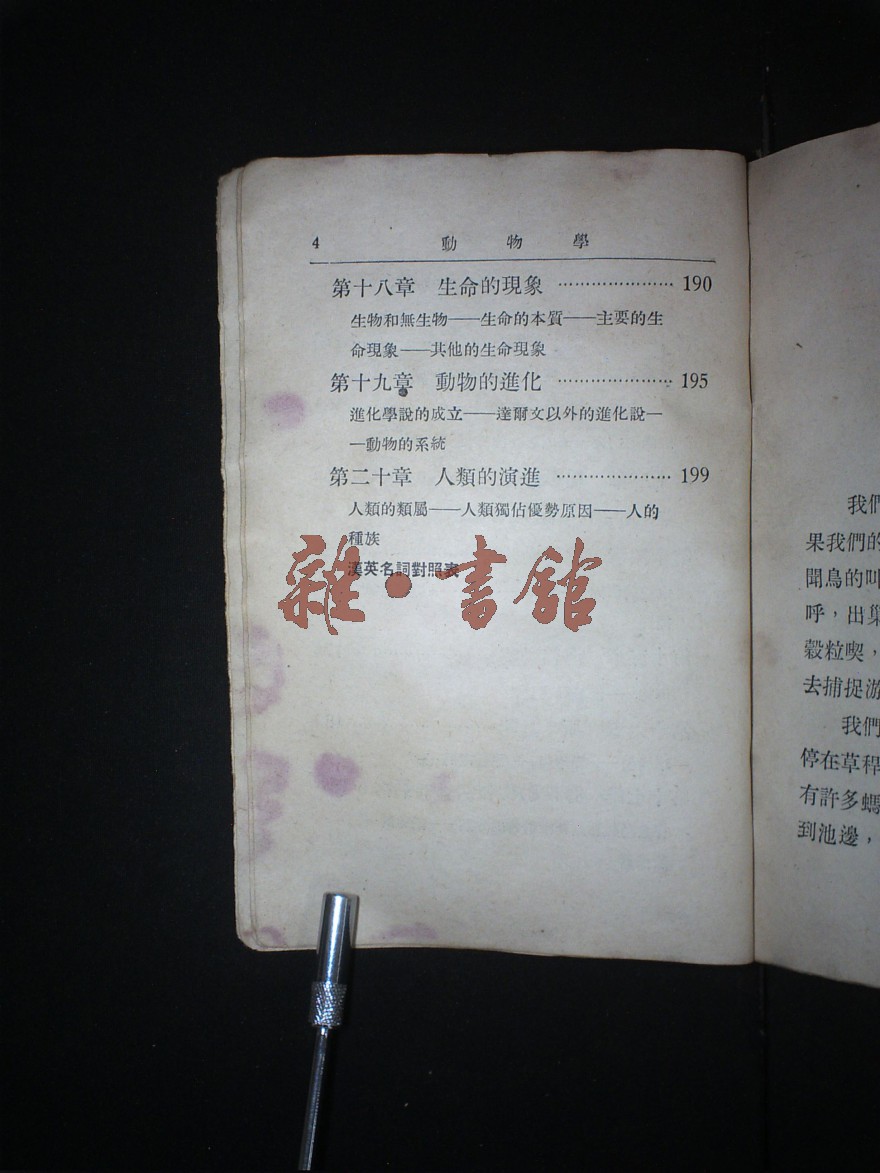 4 動物學
第十八章 生命的現象 ………………… 190
生物和無生物——生命的本質——主要的生
命現象——其他的生命現象
第十九章 動物的進化 ………………… 195
進化學說的成立——達爾文以外的進化說—
—動物的系統
第二十章 人類的演進 ………………… 199
人類的類屬——人類獨佔優勢原因——人的
種族
漢英名詞對照表
雜·書館
我們
果我們的
聞鳥的叫
呼，出巢
穀粒喫，
去捕捉游
我們
停在草稈
有許多螞
到池邊，